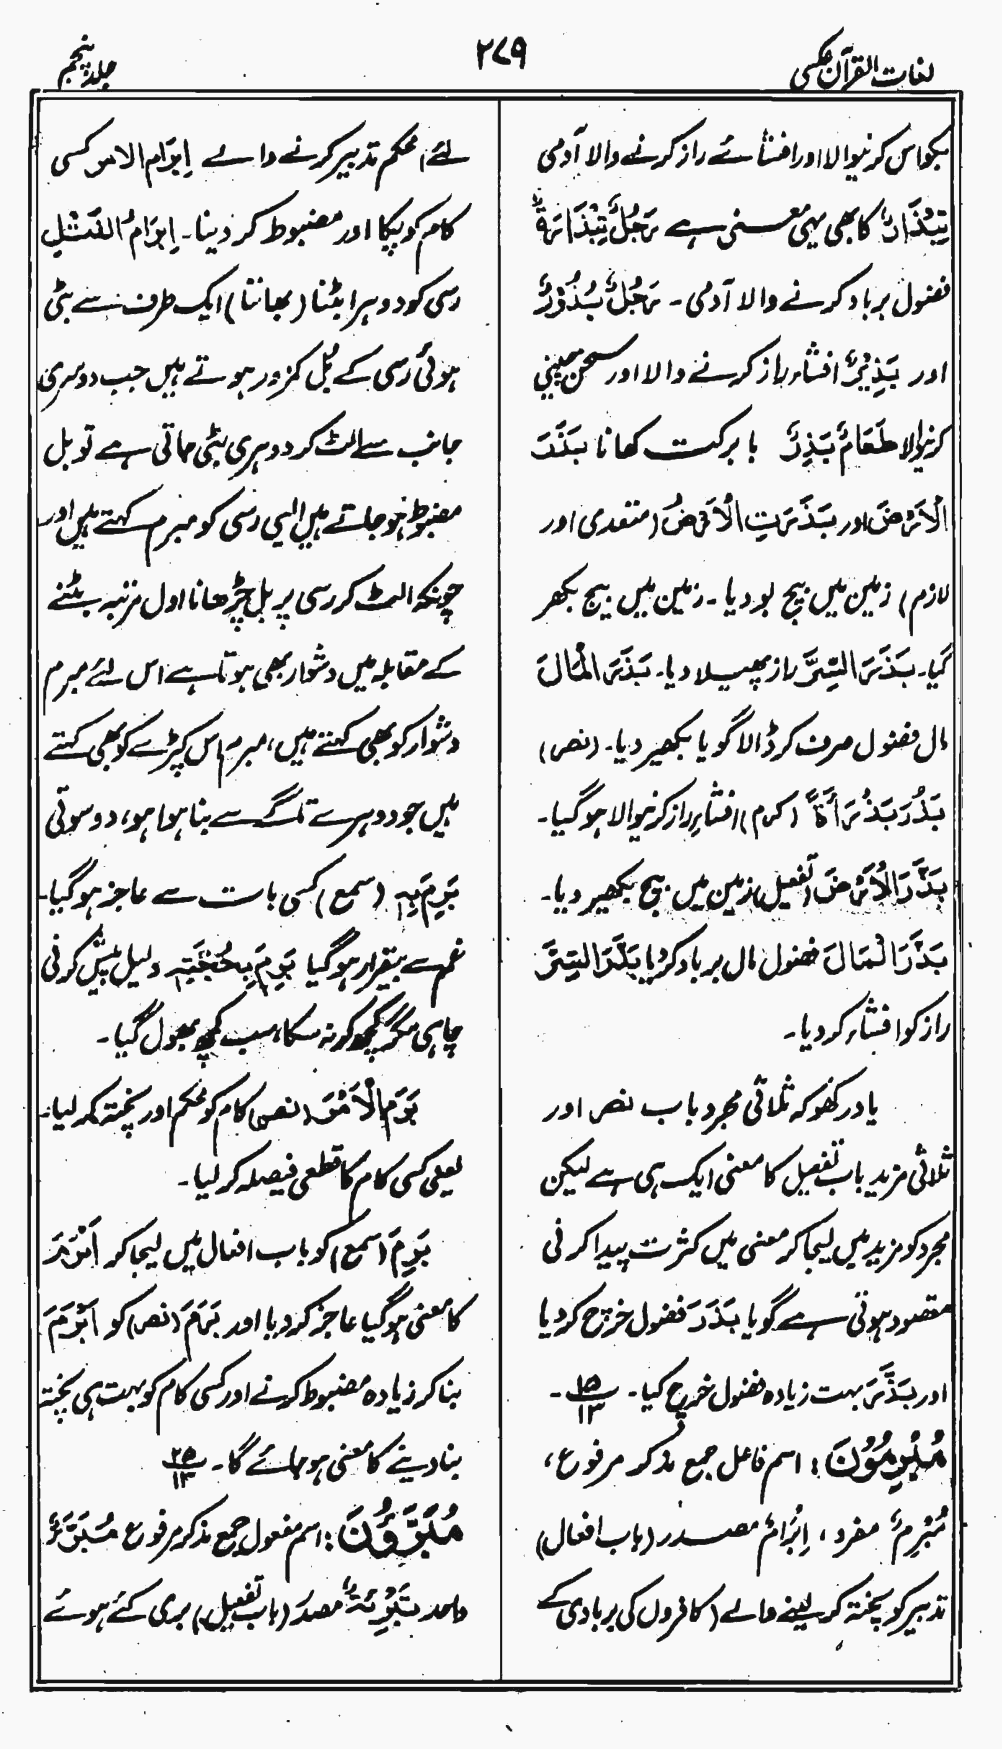 لغات القرآن عکسی
۲۷۹
جلد پنجم
بکواس کرنیوالا اور افشائے راز کرنے والا آدمی
تِبْذَارٌ کا بھی یہی معنی ہے رَجُلٌ تِبْذَارَةٌ
فضول برباد کرنے والا آدمی۔ رَجُلٌ بُذُوْرٌ
اور بَذِیْرٌ افشاء راز کرنے والا اور سخن چینی
کرنیوالا طَعَامٌ بَذِرٌ با برکت کھانا بَذَرَ
الْاَرْضَ اور بَذَرَتِ الْاَرْضُ (متعدی اور
لازم) زمین میں بیج بو دیا۔ زمین میں بیج بکھر
گیا۔ بَذَرَ السِّرَّ راز پھیلا دیا۔ بَذَرَ الْمَالَ
مال فضول صرف کر ڈالا گویا بکھیر دیا۔ (نصر)
بَذُرَ بَذْرَ اَةً (کرم) افشاءِ راز کرنیوالا ہو گیا۔
بَذَّرَ الْاَرْضَ (تفعیل) زمین میں بیج بکھیر دیا۔
بَذَّرَ الْمَالَ فضول مال برباد کر دیا بَذَّرَ السِّرَّ
راز کو افشاء کر دیا۔
یاد رکھو کہ ثلاثی مجرد باب نصر اور
ثلاثی مزید باب تفعیل کا معنی ایک ہی ہے لیکن
مجرد کو مزید میں لیجا کر معنی میں کثرت پیدا کرنی
مقصود ہوتی ہے گویا بَذَرَ فضول خرچ کر دیا
اور بَذَّرَ بہت زیادہ فضول خرچ کیا۔ ۱۵/۱۳۔
مُبْرِمُوْنَ : اسم فاعل جمع مذکر مرفوع،
مُبْرِمٌ مفرد، اِبْرَامٌ مصدر (باب افعال)
تدبیر کو پختہ کر لینے والے (کافروں کی بربادی کے
لئے) محکم تدبیر کرنے والے اِبْرَامُ الامر کسی
کام کو پکا اور مضبوط کر دینا۔ اِبْرَامُ الْفَتْلِ
رسی کو دوہرا بٹنا (بھانٹنا) ایک طرف سے بٹی
ہوئی رسی کے بَل کمزور ہوتے ہیں جب دوسری
جانب سے الٹ کر دوہری بٹی جاتی ہے تو بل
مضبوط ہو جاتے ہیں ایسی رسی کو مبرم کہتے ہیں اور
چونکہ الٹ کر رسی پر بل چڑھانا اول مرتبہ بٹنے
کے مقابلہ میں دشوار بھی ہوتا ہے اس لئے مبرم
دشوار کو بھی کہتے ہیں، مبرم اس کپڑے کو بھی کہتے
ہیں جو دوہرے تاگے سے بنا ہوا ہو، دوسوتی
بَرِمَ بِہٖ (سمع) کسی بات سے عاجز ہو گیا۔
غم سے بیقرار ہو گیا بَرِمَ بِحُجَّتِہٖ دلیل پیش کرنی
چاہی مگر کچھ کر نہ سکا، سب کچھ بھول گیا۔
بَرَمَ الْاَمْرَ (نصر) کام کو محکم اور پختہ کر لیا۔
یعنی کسی کام کا قطعی فیصلہ کر لیا۔
بَرِمَ (سمع) کو باب افعال میں لیجا کر اَبْرَمَ
کا معنی ہو گیا عاجز کر دیا اور بَرَمَ (نصر) کو اَبْرَمَ
بنا کر زیادہ مضبوط کرنے اور کسی کام کو بہت ہی پختہ
بنا دینے کا معنی ہو جائے گا۔ ۲۵/۱۳
مُبَرَّؤُنَ : اسم مفعول جمع مذکر مرفوع مُبَرَّءٌ
واحد تَبْرِئَةٌ مصدر (باب تفعیل) بری کئے ہوئے